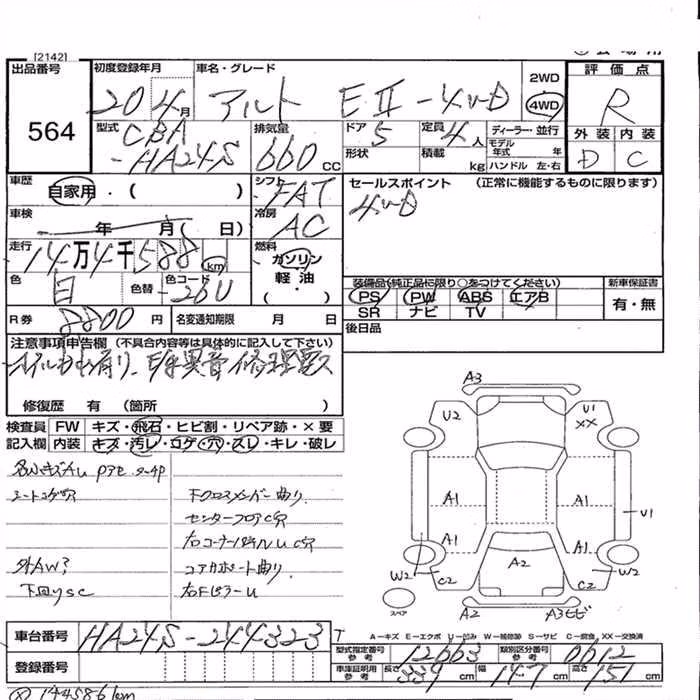 [2142]
出品番号 初度登録年月 車名・グレード 2WD 評価点
564 20年4月 アルト EⅡ-4WD 4WD R
型式 CBA-HA24S 排気量 660cc ドア 5 定員 4人 ディーラー・並行 外装 内装
形状 積載 kg モデル年式 年式 ハンドル 左・右 D C
車歴 自家用・( ) シフト FAT セールスポイント (正常に機能するものに限ります)
4WD
車検 年 月( 日) 冷房 AC
走行 14万4千588km 燃料 ガソリン 軽油・( )
色 白 色替 色コード -26U
装備品(純正品に限り○をつけてください) 新車保証書
PS PW ABS エアB 有・無
SR ナビ TV
R券 8800円 名変通知期限 月 日 後日品
注意事項申告欄 (不具合内容等は具体的に記入して下さい)
修復歴 有 (箇所 )
検査員 FW キズ・飛石・ヒビ割・リペア跡・×要
記入欄 内装 キズ・汚レ・コゲ・穴・スレ・キレ・破レ
シートコゲ穴
下クロスメンバー曲り
センターフロアC穴
コアサポート曲り
外AW?
下回りSC
A3
U2 U1
XX
A1 A1 U1
A1 A1
W2 A2 W2
C2 C2
スペア A2 A3
A-キズ E-エクボ U-凹み W-補修跡 S-サビ C-腐食 XX-交換済
車台番号 HA24S-244323
型式指定番号 参考 12663 類別区分番号 参考 0612
登録番号
車庫証明用 参考 長さ 339cm 幅 147cm 高さ 151cm
144586km